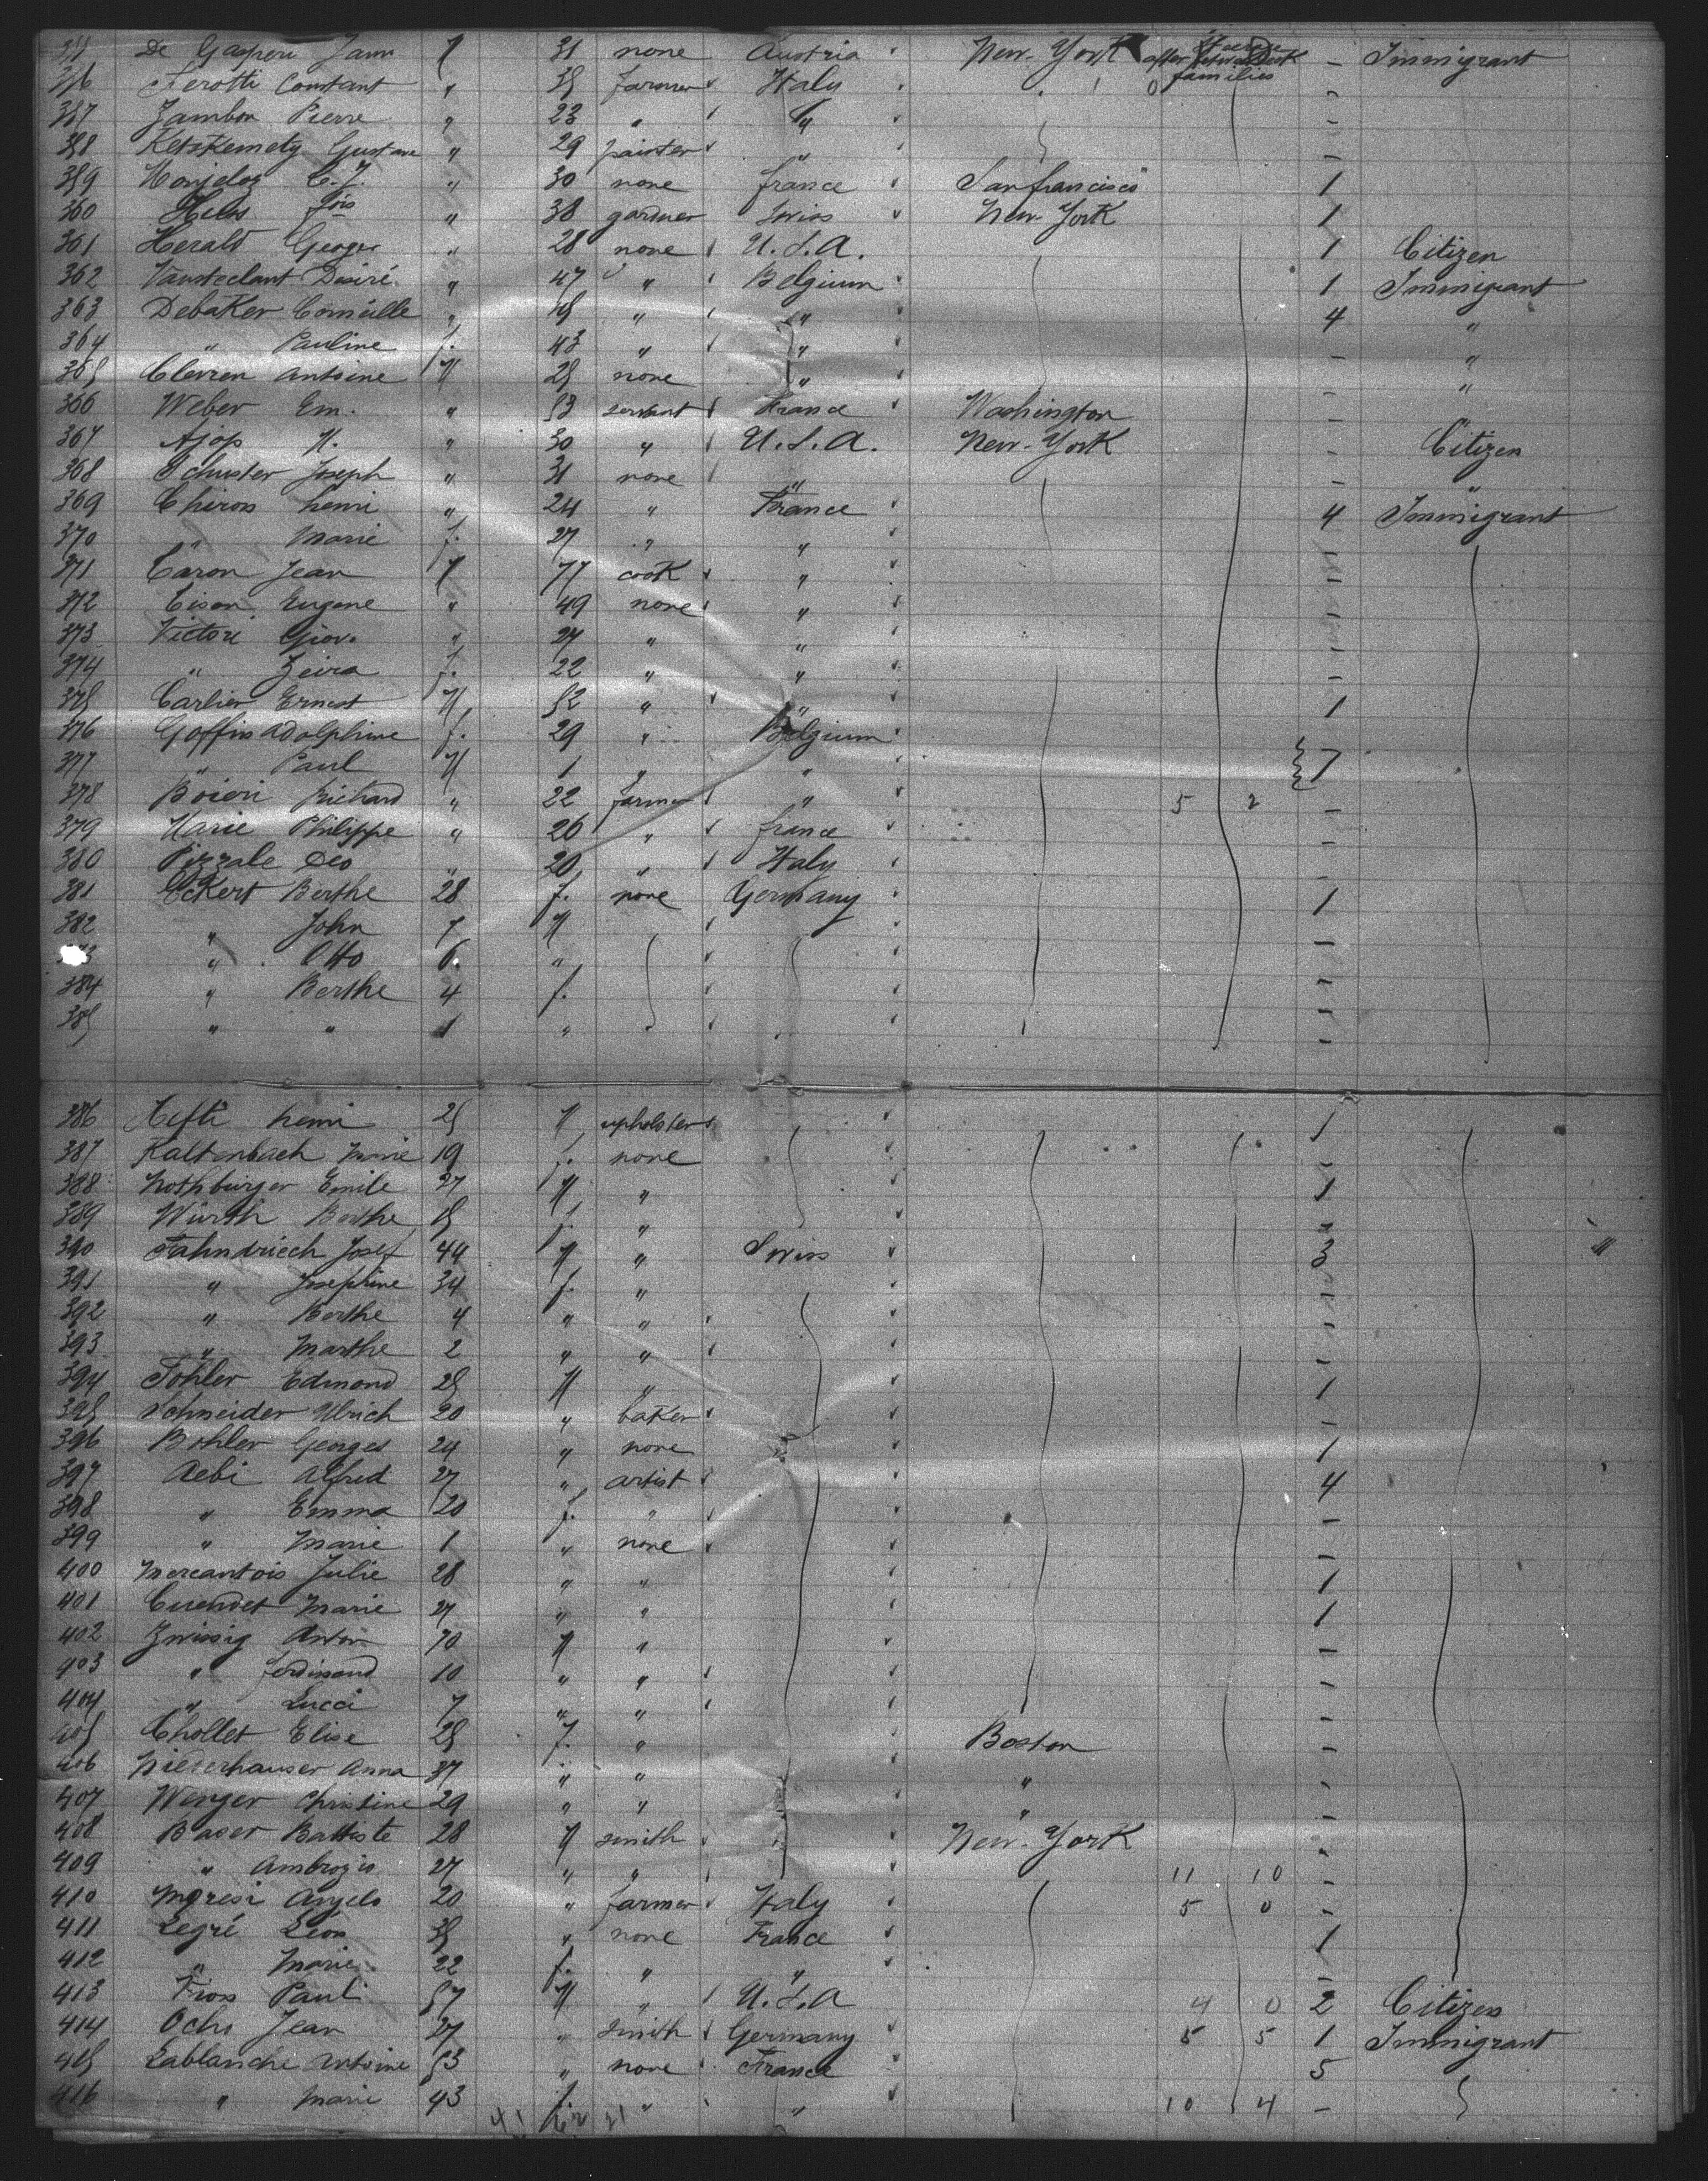 De Gasperi Jann 31 none Austria New-York Steerage after between deck families - Immigrant
356 Ferotti Constant " 35 farmer Italy -
357 Zambon Pierre " 23 " " -
358 Ketskemety Gustave " 29 painter " -
359 " 30 none france San francisco 1
360 " 38 gardner Swiss New-York 1
361 Herald George " 28 none U.S.A. 1 Citizen
362 Vansteclant Desiré " 47 " Belgium 1 Immigrant
363 Debaker Corneille " " " 4 "
364 " Pauline f. 43 " " - "
365 Clerren Antoine M 25 none " - "
366 Weber Em. " 53 servant France Washington -
367 Ajop M. " 30 " U.S.A. New-York - Citizen
368 Schuster Joseph " 31 none " - "
369 Chiron henri " 24 " France 4 Immigrant
370 " Marie f. 27 " " -
371 Caron Jean M 77 cook " -
372 Eugene " 49 none " -
373 Victori Giov. " 27 " " -
374 " Zeira f. 22 " " -
375 Carlier Ernest M 52 " " 1
376 Goffin Adolphine f. 29 " Belgium
377 " Paul M 1 " " 1
378 Boieri Richard " 22 farmer " 5 2 -
379 Marie Philippe " 26 " france -
380 Pizzale Deo " 20 " Italy -
381 Eckert Berthe 28 f. none Germany 1
382 " John 7 M -
" Otto 6. " -
384 " Berthe 4 f. -
385 " " 1 " -
386 Hefti henri 25 M upholster 1
387 Kaltenbach Marie 19 f. none -
388 Nothburger Emile 27 M " 1
389 Würth Berthe f. " -
390 Fahndriech Josef 44 M " Swiss 3
391 " Josephine 34 f. " -
392 " Berthe 4 " " -
393 " Marthe 2 " " -
394 Tohler Edmond 25 M " 1
395 Schneider Ulrich 20 " baker -
396 Bohler Georges 24 " none 1
397 Aebi Alfred 27 " artist 4
398 " Emma 20 f. " -
399 " Marie 1 " none -
400 Mercantois Julie 28 " " 1
401 Cuendet Marie 27 " " 1
402 Zwissig Anton 70 M " -
403 " ferdinand 10 " " -
404 " Lucci 7 " " -
405 Chollet Elise 25 f. " Boston -
406 Niederhauser Anna 37 " " " -
407 Wenger Christine 29 " " " -
408 Baser Battiste 28 M smith New-York -
409 " Ambrozio 27 " " 11 10 -
410 Angelo 20 " farmer Italy 5 0 -
411 Legré Leon 35 " none France 1
412 " Marie 22 f. " " -
413 Paul 57 M " U.S.A 4 0 2 Citizen
414 Ochs Jean 27 " smith Germany 5 5 1 Immigrant
415 Lablanche Antoine 53 " none France 5
416 " Marie 43 f. " " 10 4 -